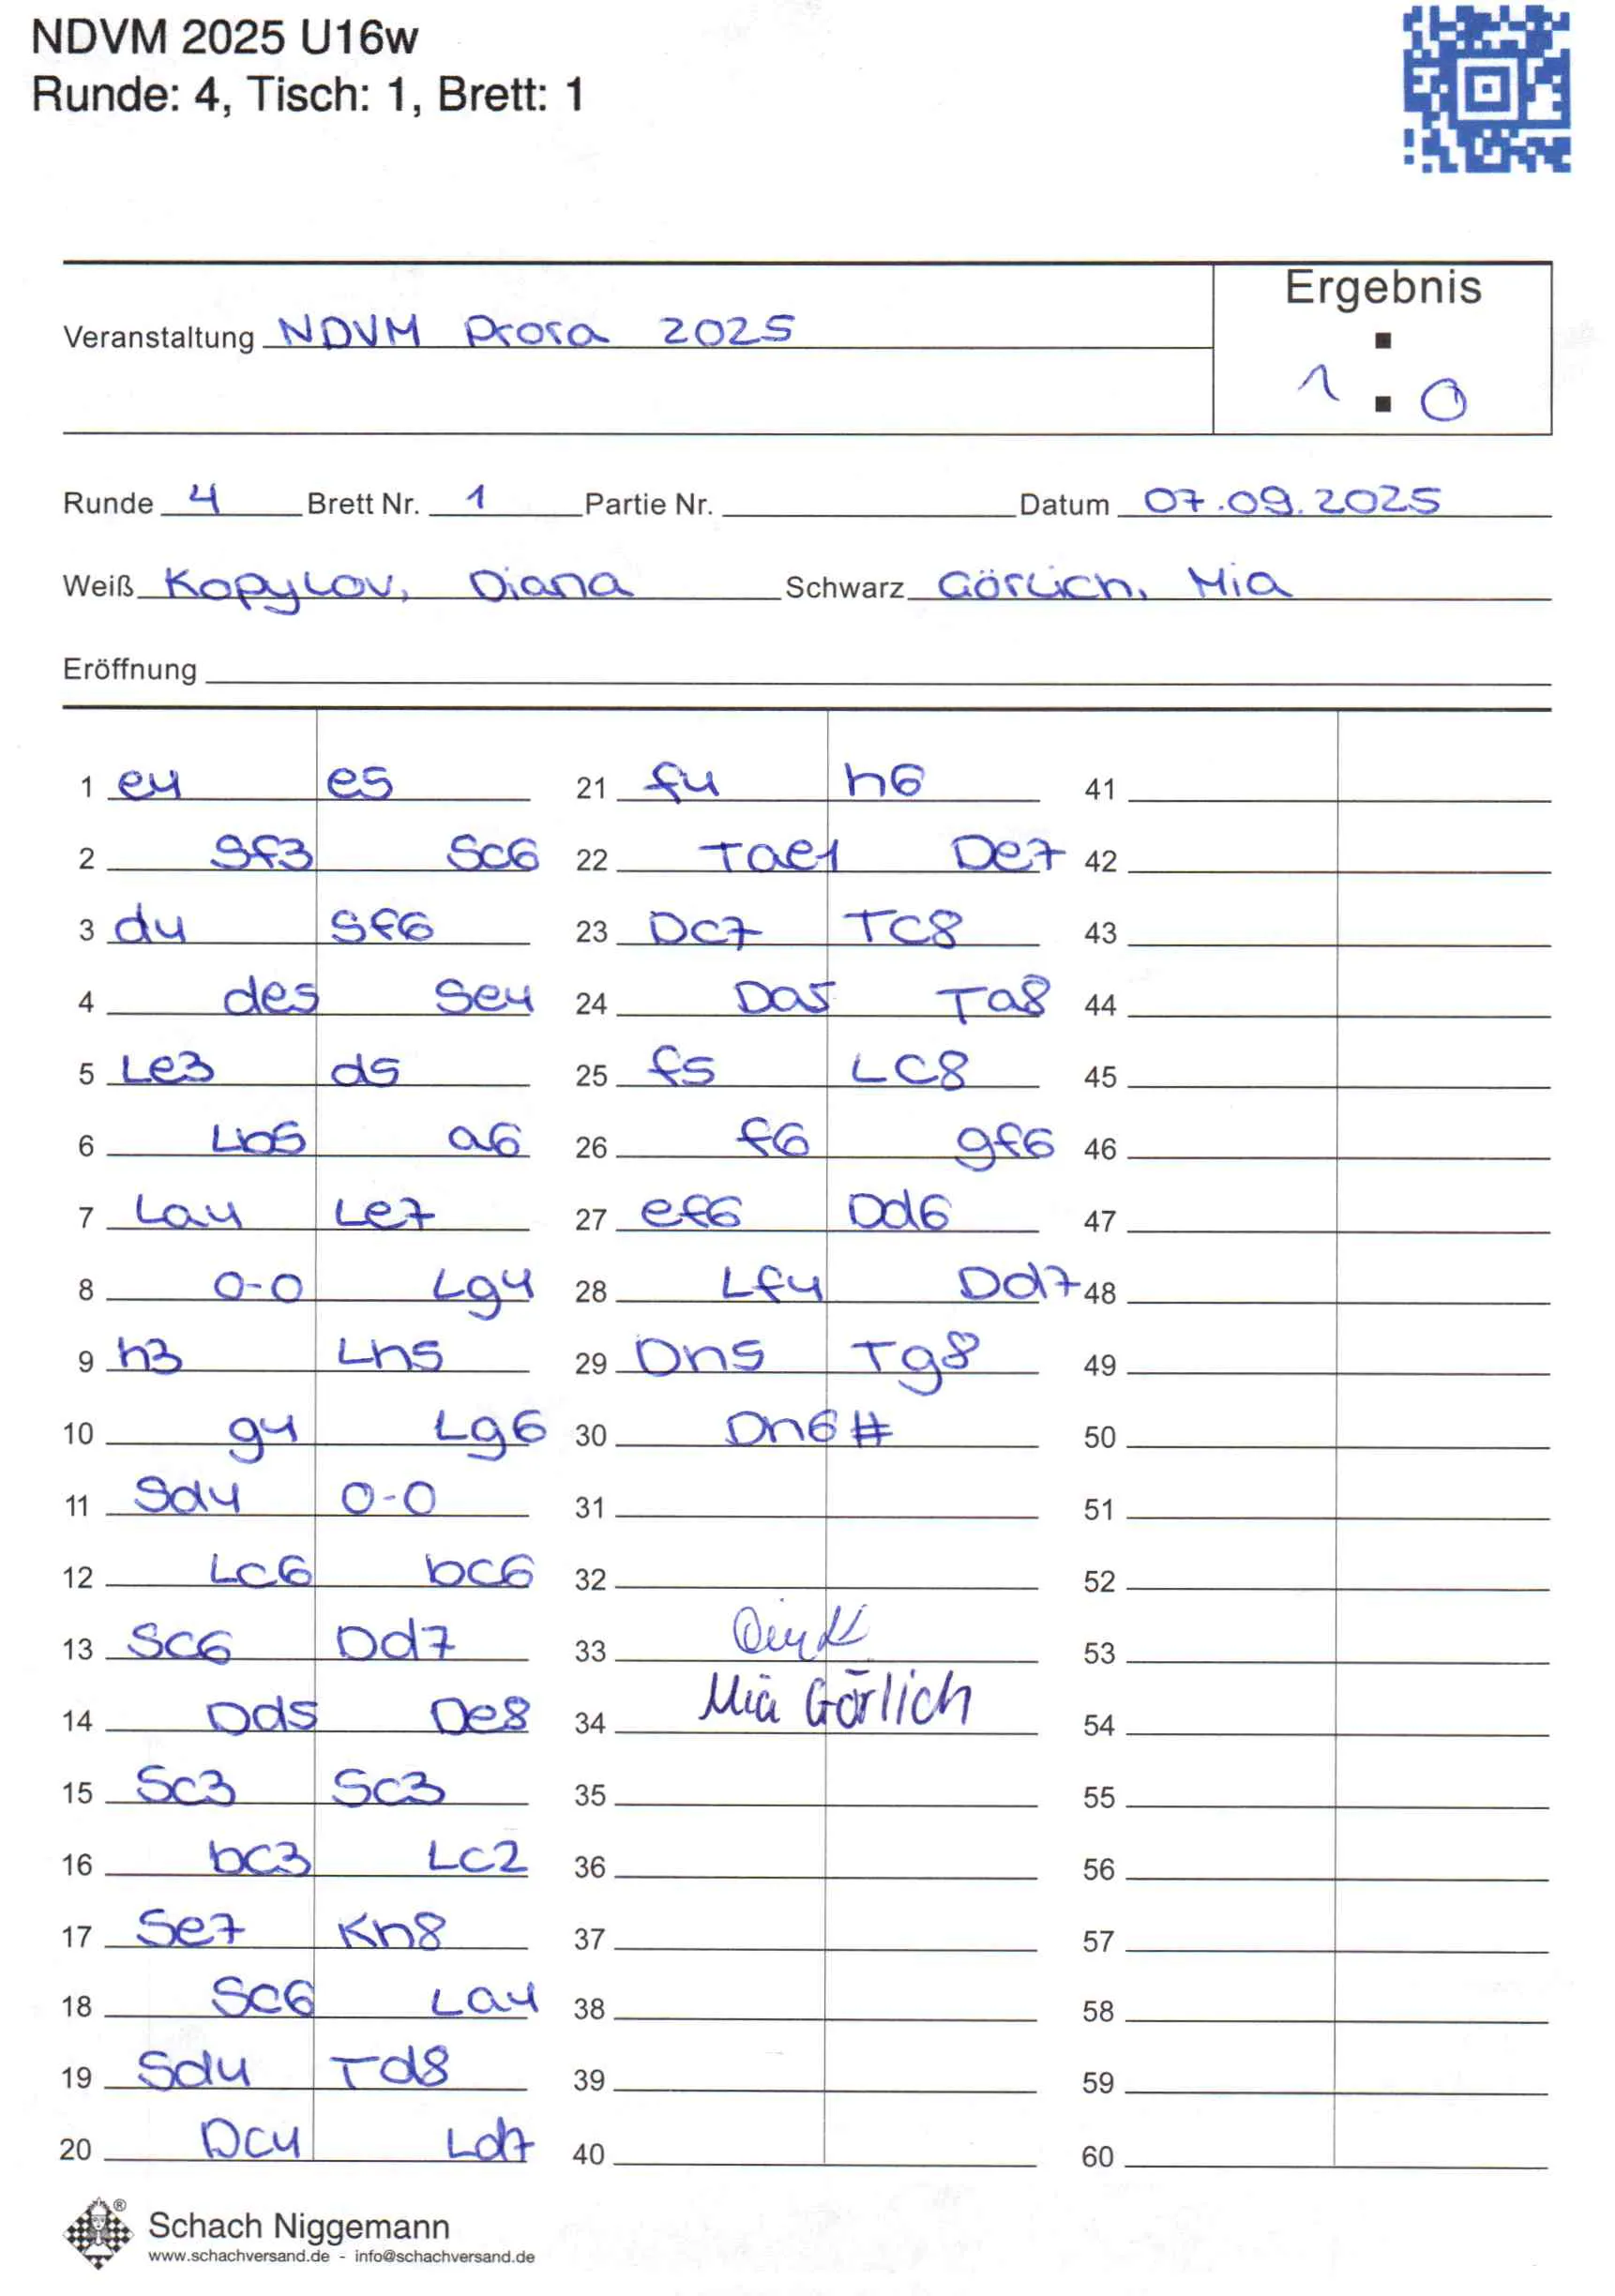 NDVM 2025 U16w
Runde: 4, Tisch: 1, Brett: 1
Ergebnis
Veranstaltung NDVM Prora 2025
1 : 0
Runde 4 Brett Nr. 1 Partie Nr. Datum 07.09.2025
Weiß Kopylov, Diana Schwarz Görlich, Mia
Eröffnung
1 e4 e5 21 f4 h6 41
2 Sf3 Sc6 22 Tae1 De7 42
3 d4 Sf6 23 Dc7 TC8 43
4 de5 Se4 24 Da5 Ta8 44
5 Le3 d5 25 f5 LC8 45
6 Lb5 a6 26 f6 gf6 46
7 La4 Le7 27 ef6 Dd6 47
8 0-0 Lg4 28 Lf4 Dd7 48
9 h3 Lh5 29 Dh5 Tg8 49
10 g4 Lg6 30 Dh6# 50
11 Sd4 0-0 31 51
12 Lc6 bc6 32 52
13 Sc6 Dd7 33 53
14 Dd5 De8 34 Mia Görlich 54
15 Sc3 Sc3 35 55
16 bc3 Lc2 36 56
17 Se7 Kh8 37 57
18 Sc6 La4 38 58
19 Sd4 Td8 39 59
20 Dc4 Ld7 40 60
® Schach Niggemann
www.schachversand.de - info@schachversand.de